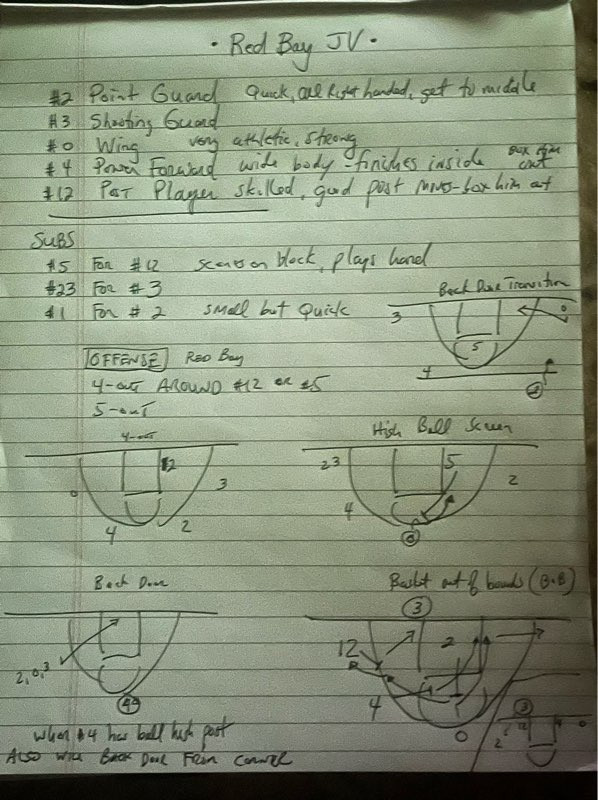 • Red Bay JV •
#2 Point Guard Quick, all Right handed, get to middle
#3 Shooting Guard
#0 Wing very athletic, strong
#4 Power Forward wide body - finishes inside box him out
#12 Post Player skilled, good post moves - box him out
SUBS
#5 For #12 scores on block, plays hard
#23 For #3
#1 For #2 small but Quick
Back Door Transition
3 0
5
4 2
OFFENSE Red Bay
4-out AROUND #12 or #5
5-out
4-out
12
0 3
4 2
High Ball Screen
23 5 2
4
0
Back Door
2, 0, 3
4
when #4 has ball high post
ALSO will BACK DOOR FROM CORNER
Basket out of bounds (BOB)
3
12 2
4
0
3
12 4 0
2